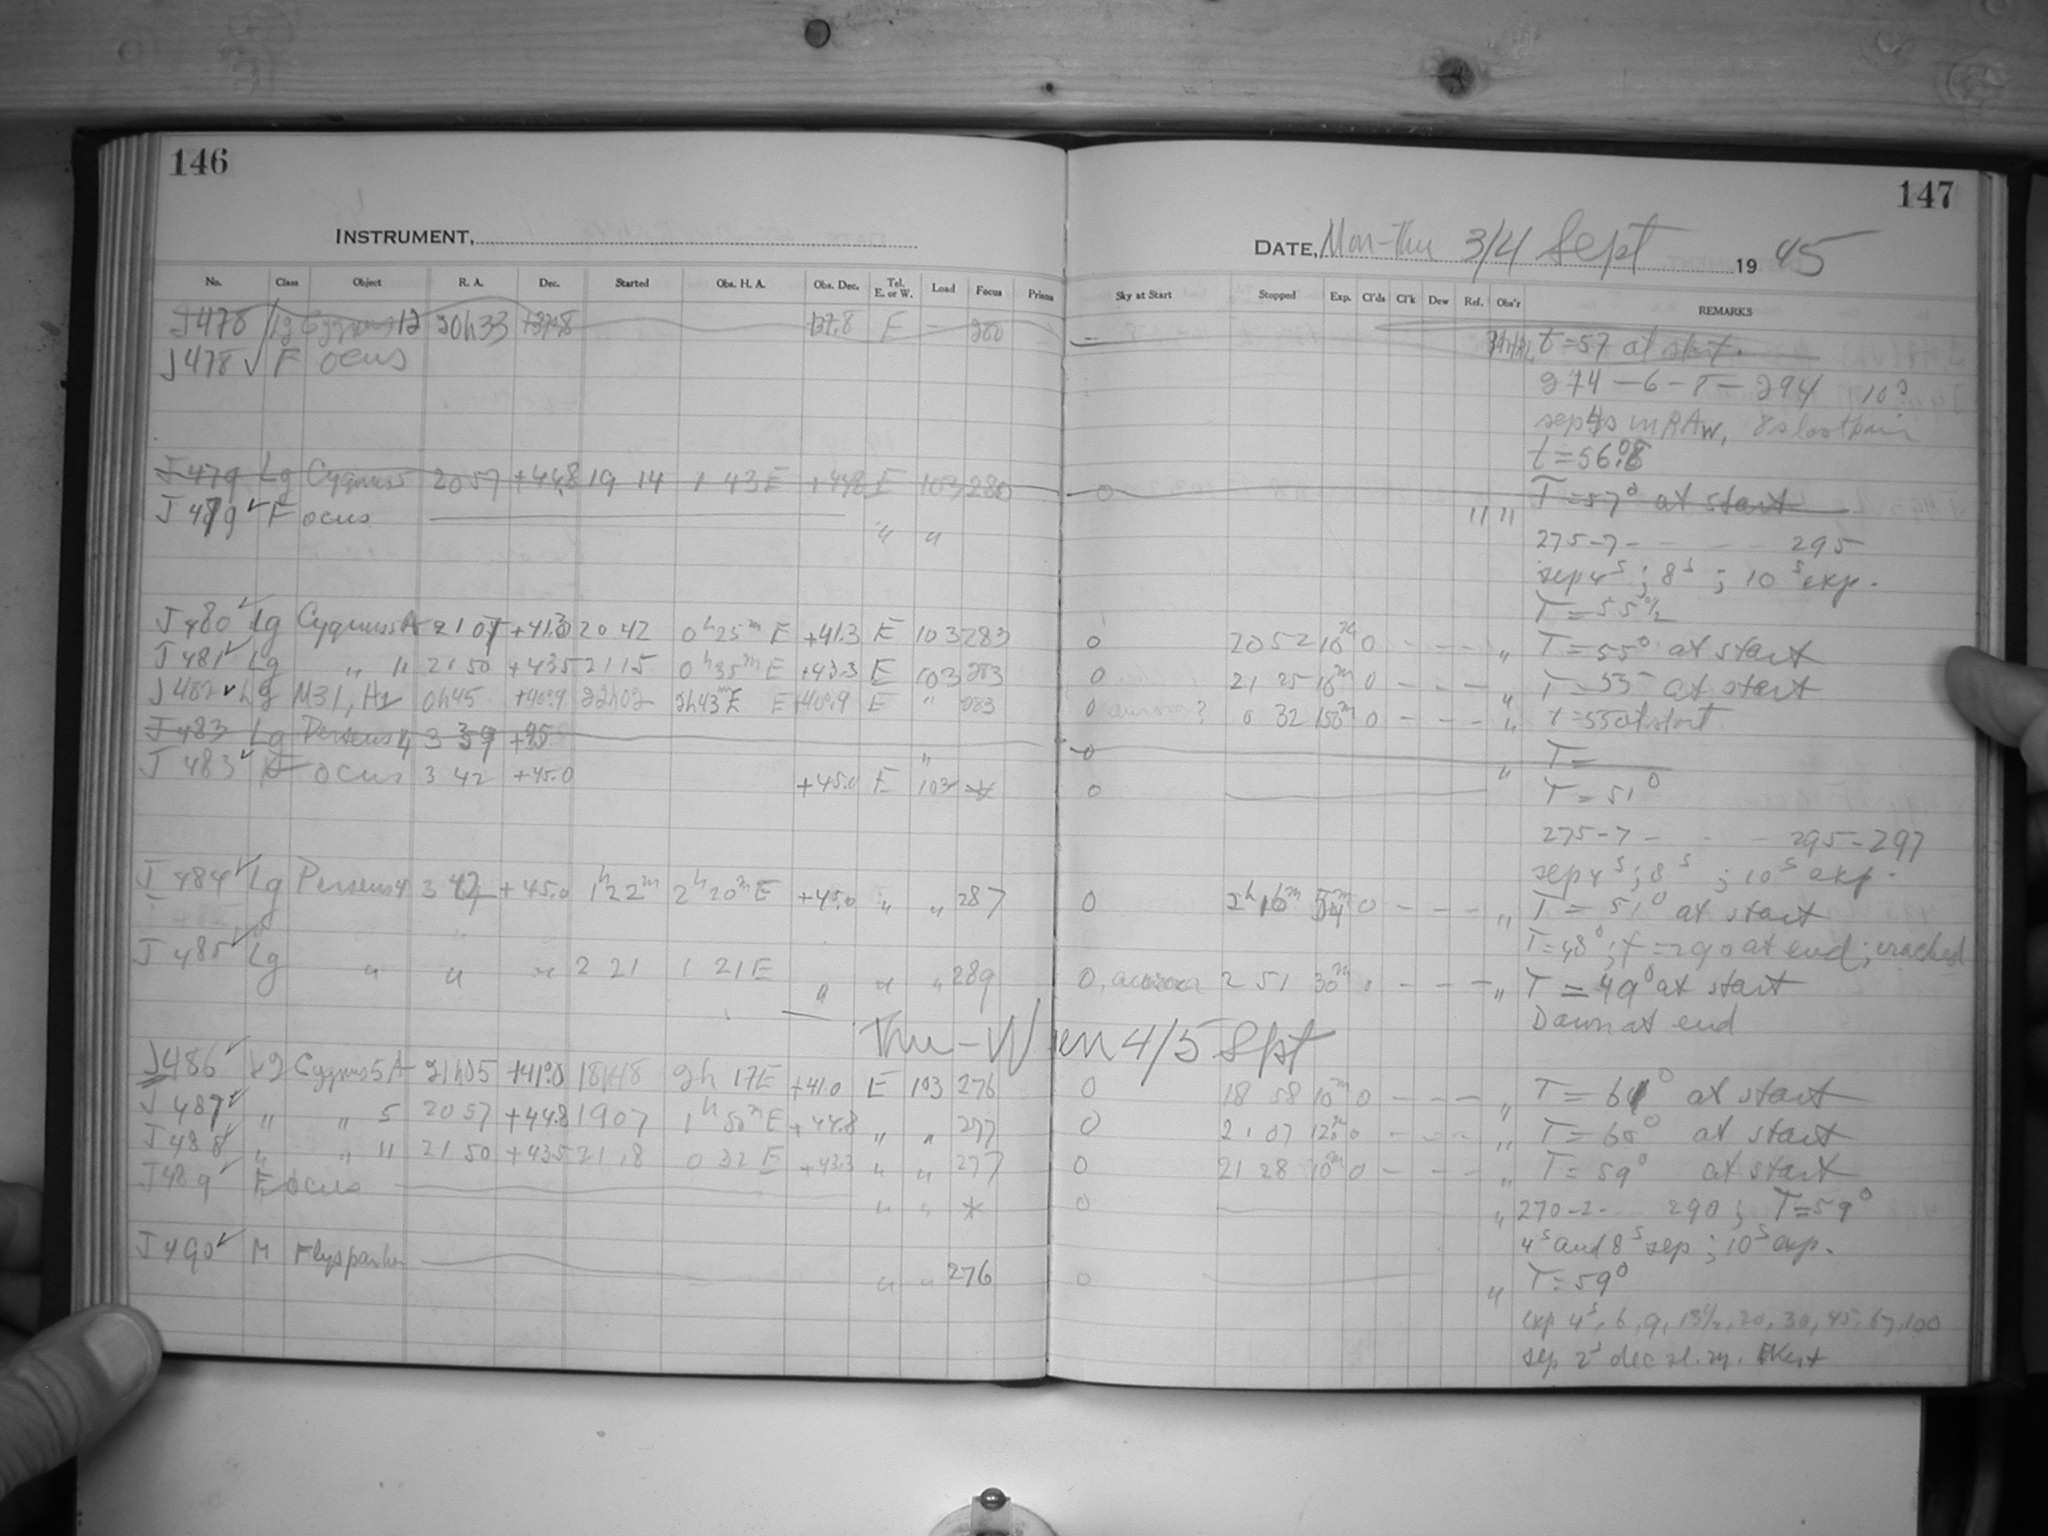 146
147
INSTRUMENT,
DATE, Mon-Thu 3/4 Sept 1945
No. Class Object R. A. Dec. Started Obs. H. A. Obs. Dec. Tel. E. or W. Load Focus Prisms Sky at Start Stopped Exp. Cl'ds Cl'k Dew Ref. Obs'r REMARKS
J478 lg Cygnus 12 20h33 +37.8 +37.8 E - 280 - t=57 at start.
J478 ✓ Focus
274-6-8-294 10s
sep 4s in RAW, 8s last pair
t=56.8
J479 Lg Cygnus 5 2057 +44.8 19 14 1 43 E +44.8 E 103 280 0 T=57° at start
J479 ✓ Focus " " " "
275-7- - - - 295
sep 4s; 8s; 10s exp.
T=55°1/2
J480 ✓ Lg Cygnus 5A 2107 +41.3 20 42 0h25m E +41.3 E 103 283 0 20 52 10m 0 - - - " T=55° at start
J481 ✓ Lg " 11 2150 +43.5 21 15 0h35m E +43.3 E 103 283 0 21 25 10m 0 - - - " T=55 at start
J482 ✓ Lg M31, H1 0h45 +40.9 22h02 2h43m E E +40.9 E " 283 0 aurora? 0 32 150m 0 - - - " t=55 at start
J483 Lg Perseus 4 3 39 +45 " 0 T=
J483 ✓ Focus 3 42 +45.0 +45.0 E 103 * 0 " T=51°
275-7- - - 295-297
sep 4s; 8s; 10s exp.
J484 ✓ Lg Perseus 4 3 42 +45.0 1h22m 2h20m E +45.0 " " 287 0 2h16m 54m 0 - - - " T=51° at start
T=48°; f=290 at end; cracked
J485 ✓ Lg " " " 2 21 1 21 E " " " 289 0, aurora 2 51 30m 0 - - - " T=49° at start
Dawn at end
Thu-Wen 4/5 Sept
J486 ✓ Lg Cygnus 5A 21h05 +41.0 18h48 2h 17E +41.0 E 103 276 0 18 58 10m 0 - - - " T=61° at start
J487 ✓ " " 5 2057 +44.8 1907 1h50m E +44.8 " " 277 0 21 07 120m 0 - - - " T=60° at start
J488 ✓ " " 11 2150 +43.5 21 18 0 32 E +43.3 " " 277 0 21 28 10m 0 - - - " T=59° at start
J489 ✓ Focus " " * 0 " 270-2- 290; T=59°
4s and 8s sep; 10s exp.
J490 ✓ M Flyspanker " " 276 0 " T=59°
exp 4s, 6, 9, 13 1/2, 20, 30, 45, 67, 100
sep 2s dec sl. m.